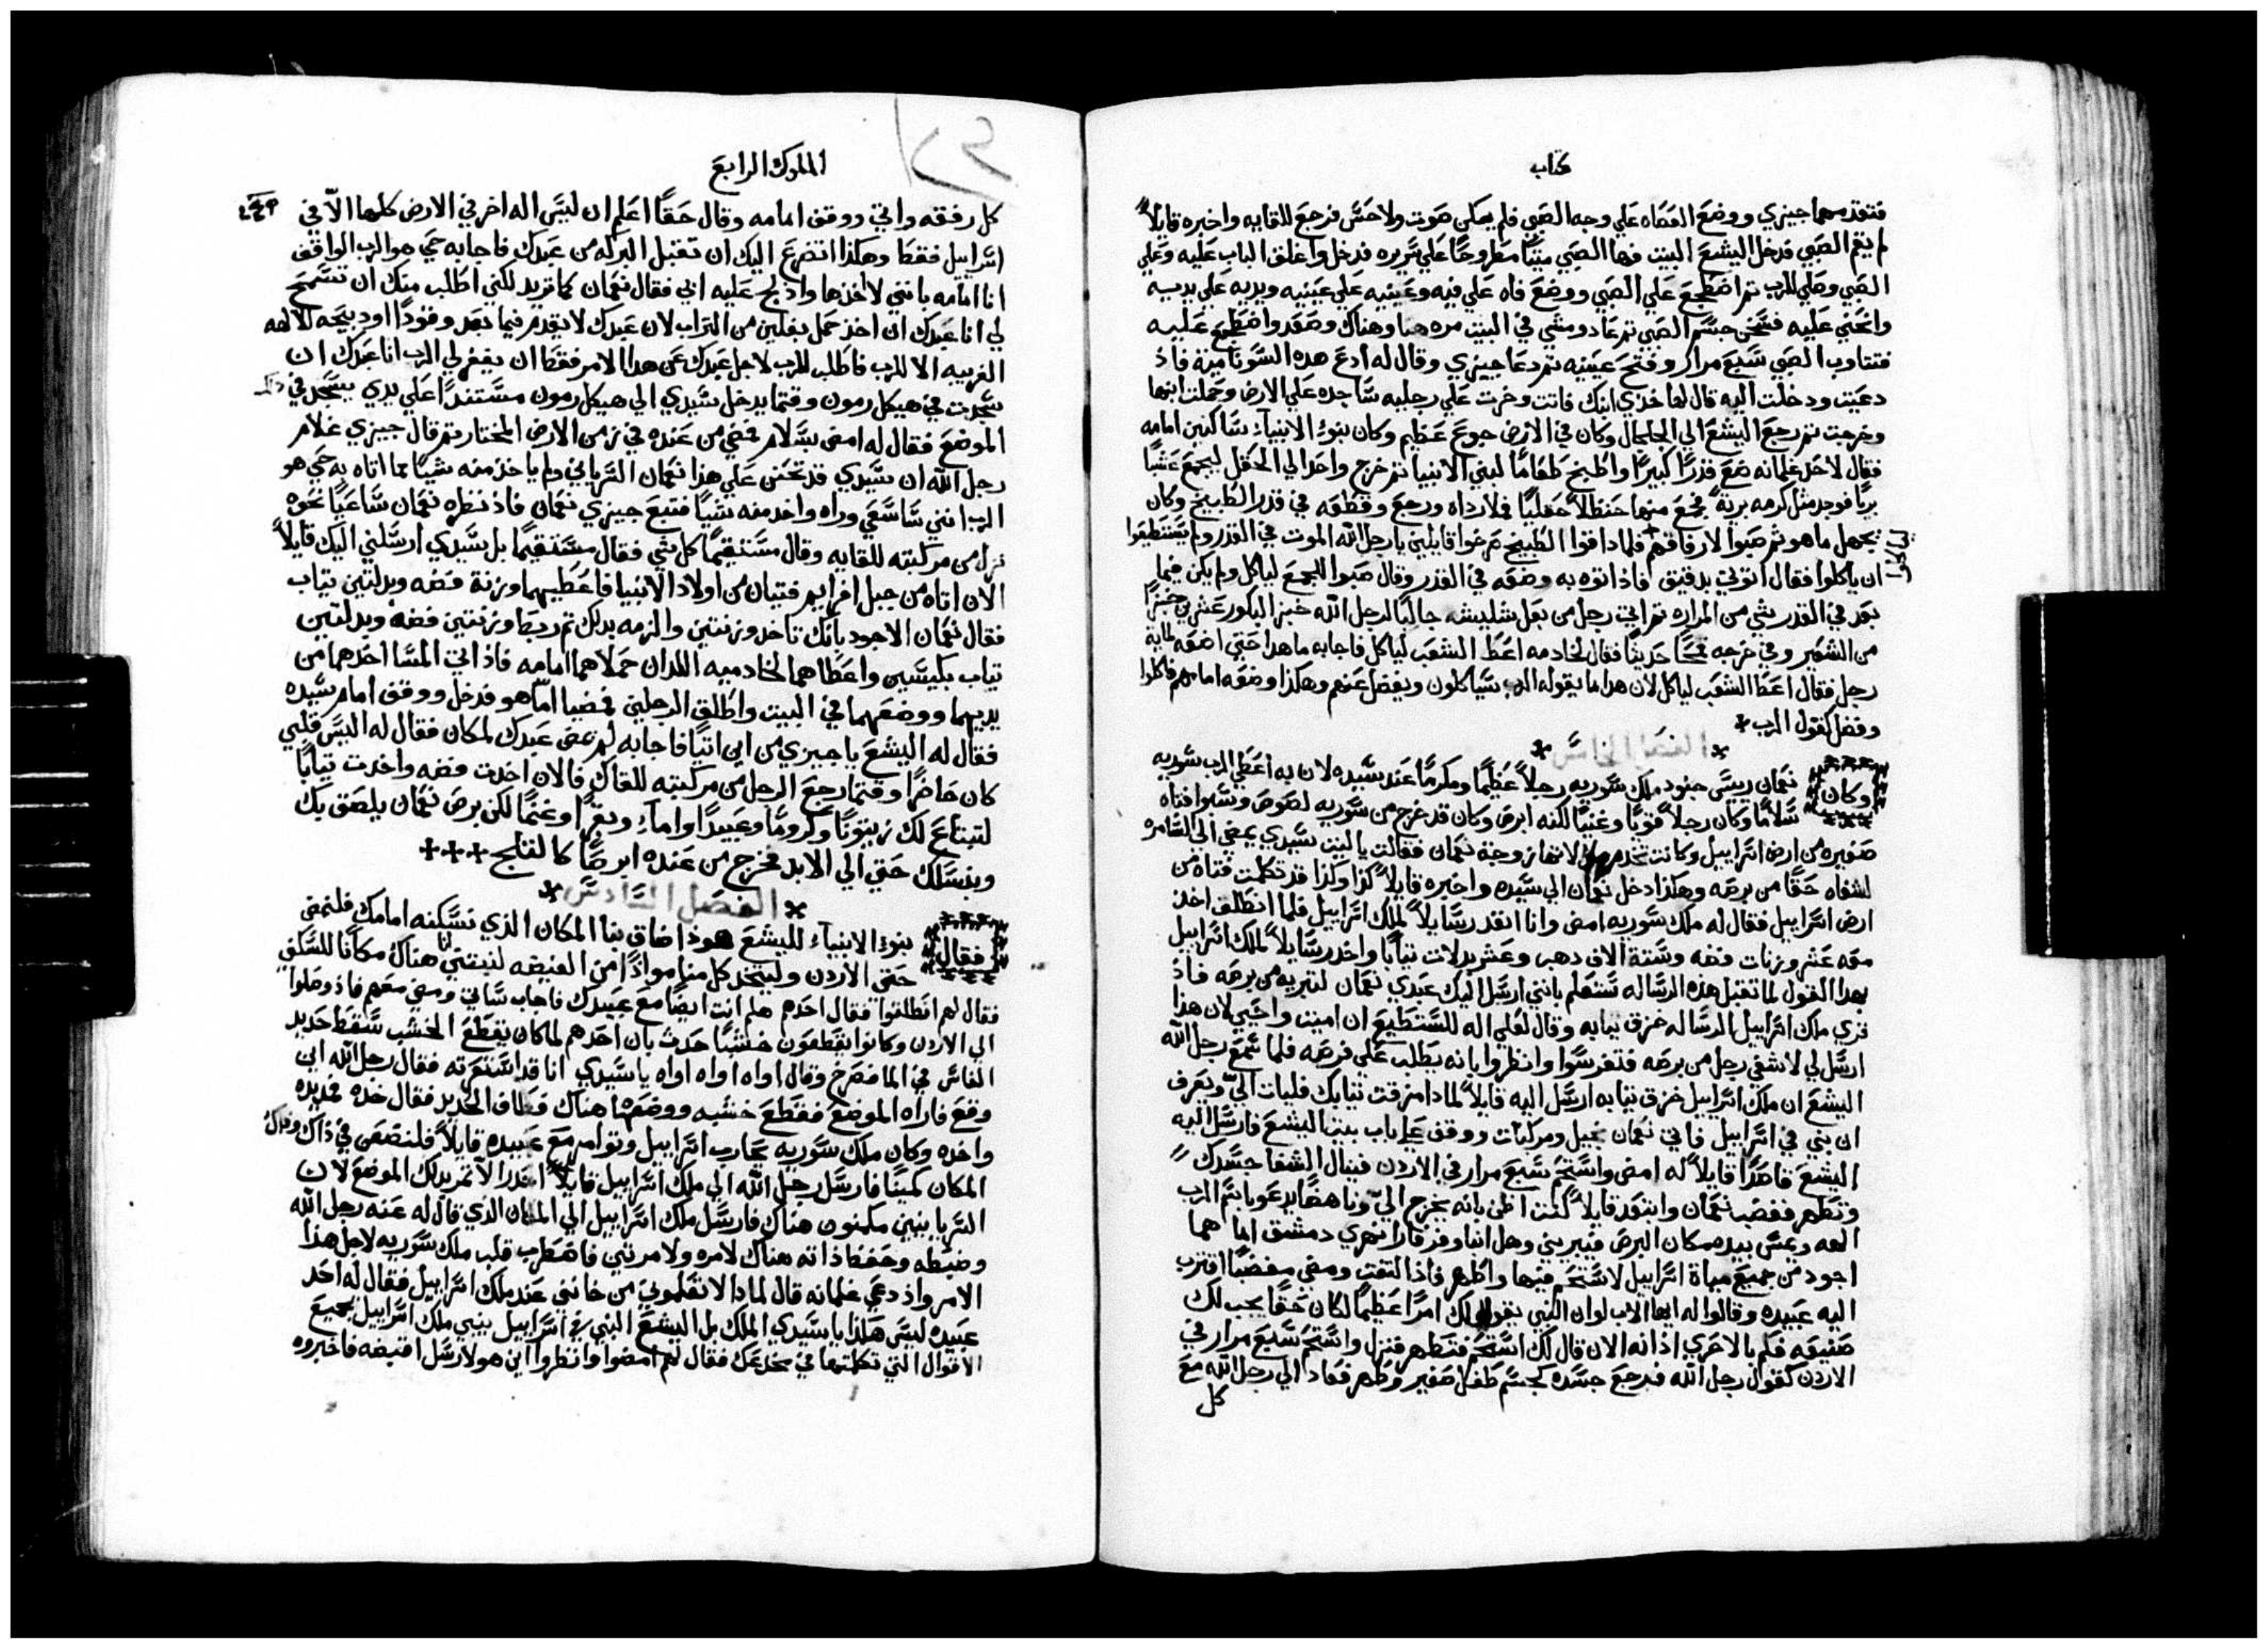 كتاب
فتقدمهما جيزي ووضع العصاه علي وجه الصبي فلم يمكن صوت ولا حس فرجع للقايه واخبره قايلاً
لم يقم الصبي فدخل اليشع البيت فها الصبي ميتاً مطروحاً علي سريره فدخل واغلق الباب عليه وعلي
الصبي وصلي للرب ثم اضطجع علي الصبي ووضع فاه علي فيه وعينيه علي عينيه ويديه علي يديه
وانحني عليه فسخن جسم الصبي ثم عاد ومشي في البيت مره هنا وهناك وصعد واضطجع عليه
فتتاوب الصبي سبع مرار وفتح عينيه ثم دعا جيزي وقال له ادع هذه السونامية فاذ
دعيت ودخلت اليه قال لها خذي ابنك فاتت وخرت علي رجليه ساجده علي الارض وحملت ابنها
وخرجت ثم رجع اليشع الي الجلجال وكان في الارض جوع عظيم وكان بنوء الانبياء ساكنين امامه
فقال لاحد غلمانه ضع قدراً كبيراً واطبخ طعاماً لبني الانبيا ثم خرج واحد الي الحقل ليجمع عشباً
برياً فوجد مثل كرمه برية فجمع منها حنظلاً حقلياً فملا رداه ورجع وقطعه في قدر الطبيخ وكان
يجهل ما هو ثم صبوا لارفاقهم فلما ذاقوا الطبيخ صرخوا قايلين يا رجل الله الموت في القدر ولم يستطيعوا
ان ياكلوا فقال اتوني بدقيق فاذ اتوه به وضعه في القدر وقال صبوا للجمع لياكل ولم يكن فيما
بعد في القدر شي من المراره ثم اتي رجل من بعل شليشه جالباً لرجل الله خبز البكور عشرين خبزاً
من الشعير وفي خرجه قمحاً حديثاً فقال لخادمه اعط الشعب لياكل فاجابه ما هدا حتي اضعه لمايه
رجل فقال اعط الشعب لياكل لان هدا ما يقوله الرب سياكلون ويفضل عنهم وهكذا وضعه امامهم فاكلوا
وفضل كقول الرب
الفصل الخامس
وكان نعمان ريس جنود ملك سوريه رجلاً عظيماً ومكرماً عند سيده لان به اعطي الرب سوريه
سلاماً وكان رجلاً قوياً وغنياً لكنه ابرص وكان قد خرج من سوريه لصوص وسبوا فتاه
صغيره من ارض اسراييل وكانت تخدم زوجة نعمان فقالت يا ليت سيدي يمضي الي السامره
لشفاه حقاً من برصه وهكذا دخل نعمان الي سيده واخبره قايلاً كذا وكذا قد تكلمت فتاه من
ارض اسراييل فقال له ملك سوريه امض وانا انفد رسايلاً لملك اسراييل فلما انطلق اخذ
معه عشر وزنات فضه وستة الاف دهب وعشر بدلات ثياباً واخد رسايلاً لملك اسراييل
بهدا القول لما تقبل هذه الرساله ستعلم بانني ارسل اليك عبدي نعمان لتبريه من برصه فاذ
قري ملك اسراييل الرساله خرق ثيابه وقال لعلي اله لاستطيع ان اميت واحيي لان هذا
ارسل لي لاشفي رجل من برصه فتفرسوا وانظروا بانه يطلب علي فرصه فلما سمع رجل الله
اليشع ان ملك اسراييل خرق ثيابه ارسل اليه قايلاً لمادا مزقت ثيابك فليات الي ويعرف
ان نبي في اسراييل فاتي نعمان بخيل ومركبات ووقف علي باب بيت اليشع فارسل اليه
اليشع قاصداً قايلاً له امض واستحم سبع مرار في الاردن فينال الشفا جسدك
وتطهر فغضب نعمان وابتعد قايلاً كنت اظن بانه يخرج الي وناهضاً يدعو باسم الرب
الهه ويمس بيده مكان البرص فيبريني وهل ابنا وفرفار انهري دمشق اما هما
اجود من جميع مياة اسراييل لاستحم فيها واطهر فاذا التفت ومضي مغضباً اقترب
اليه عبيده وقالوا له ايها الاب لو ان النبي يقول لك امراً عظيماً لكان حقاً يجب لك
صنيعه فكم بالاحري اذ انه الان قال لك استحم فتطهر فنزل واستحم سبع مرار في
الاردن كقول رجل الله فرجع جسده كجسم طفل صغير وطهر فعاد الي رجل الله مع
كل
الملوك الرابع
كل رفقه واتي ووقف امامه وقال حقاً اعلم ان ليس اله اخر في الارض كلها الا في
اسراييل فقط وهكذا اتضرع اليك ان تقبل البركه من عبدك فاجابه حي هو الرب الواقف
انا امامه بانني لا اخذها واذ لج عليه ابي فقال نعمان كما تريد لكني اطلب منك ان تسمح
لي انا عبدك ان اخذ حمل بغلين من التراب لان عبدك لا يقدم فيما بعد وقوداً او دبيحه لالهه
الغريبه الا للرب فاطلب للرب لاجل عبدك عن هدا الامر فقط ان يغفر لي الرب انا عبدك ان
سجدت في هيكل رمون وقتما يدخل سيدي الي هيكل رمون مستنداً علي يدي يسجد في ذلك
الموضع فقال له امض بسلام فمضي من عنده في زمن الارض المختار ثم قال جيزي غلام
رجل الله ان سيدي قد تحنن علي هدا نعمان السرياني ولم ياخذ منه شياً مما اتاه به حي هو
الرب انني ساسعي وراه واخد منه شياً فتبع جيزي نعمان فاذ نظره نعمان ساعياً نحوه
نزل من مركبته للقايه وقال مستقيماً كل شي فقال مستقيماً بل سيدي ارسلني اليك قايلاً
الان اتاه من جبل افرايم فتيان من اولاد الانبيا فاعطيهما وزنة فضه وبدلتين ثياب
فقال نعمان الاجود بانك تاخد وزنتين والزمه بدلك ثم ربط وزنتين فضه وبدلتين
ثياب بكيسين واعطاهما لخادميه اللدان حملاهما امامه فاذ اتي المسا اخدهما من
يديهما ووضعهما في البيت واطلق الرجلين فمضيا اما هو فدخل ووقف امام سيده
فقال له اليشع يا جيزي من اين اتيا فاجابه لم يمض عبدك لمكان فقال له اليس قلبي
كان حاضراً وقتما رجع الرجل من مركبته للقاك فالان اخدت فضه واخدت ثياباً
لتبتاع لك زيتوناً وكروماً وعبيداً واماء وبقراً وغنماً لكن برص نعمان يلصق بك
وبنسلك حتي الي الابد فخرج من عنده ابرصاً كالثلج
الفصل السادس
فقال بنوء الانبياء لليشع هوذا ضاق بنا المكان الذي نسكنه امامك فلنمضي
حتي الاردن وليخد كل منا مواداً من الغيضه لنبتني لنا هناك مكاناً للسكني
فقال لهم انطلقوا فقال احدهم هلم انت ايضاً مع عبيدك فاجاب ساتي ومضي معهم فاذ وصلوا
الي الاردن وكانوا يقطعون خشباً حدث بان احدهم لما كان يقطع الخشب سقط حديد
الفاس في الما فصرخ وقال اواه اواه اواه يا سيدي انا قد استعرته فقال رجل الله اين
وقع فاراه الموضع فقطع خشبه ووضعها هناك فطاف الحديد فقال خده فمد يده
واخده وكان ملك سوريه يحارب اسراييل وتوامر مع عبيده قايلاً فلنضعن في ذاك وذاك
المكان كميناً فارسل رجل الله الي ملك اسراييل قايلاً احدر الا تمر بدلك الموضع لان
السريانيين مكمنون هناك فارسل ملك اسراييل الي المكان الذي قال له عنه رجل الله
وضبطه وحفظ ذاته هناك لا مره ولا مرتين فاضطرب قلب ملك سوريه لاجل هذا
الامر واذ دعي غلمانه قال لمادا لا تعلموني من خانني عند ملك اسراييل فقال له احد
عبيده ليس هكذا يا سيدي الملك بل اليشع النبي في اسراييل ينبي ملك اسراييل بجميع
الاقوال التي تكلمتها في مخدعك فقال لهم امضوا وانظروا اين هو لارسل اقبضه فاخبروه